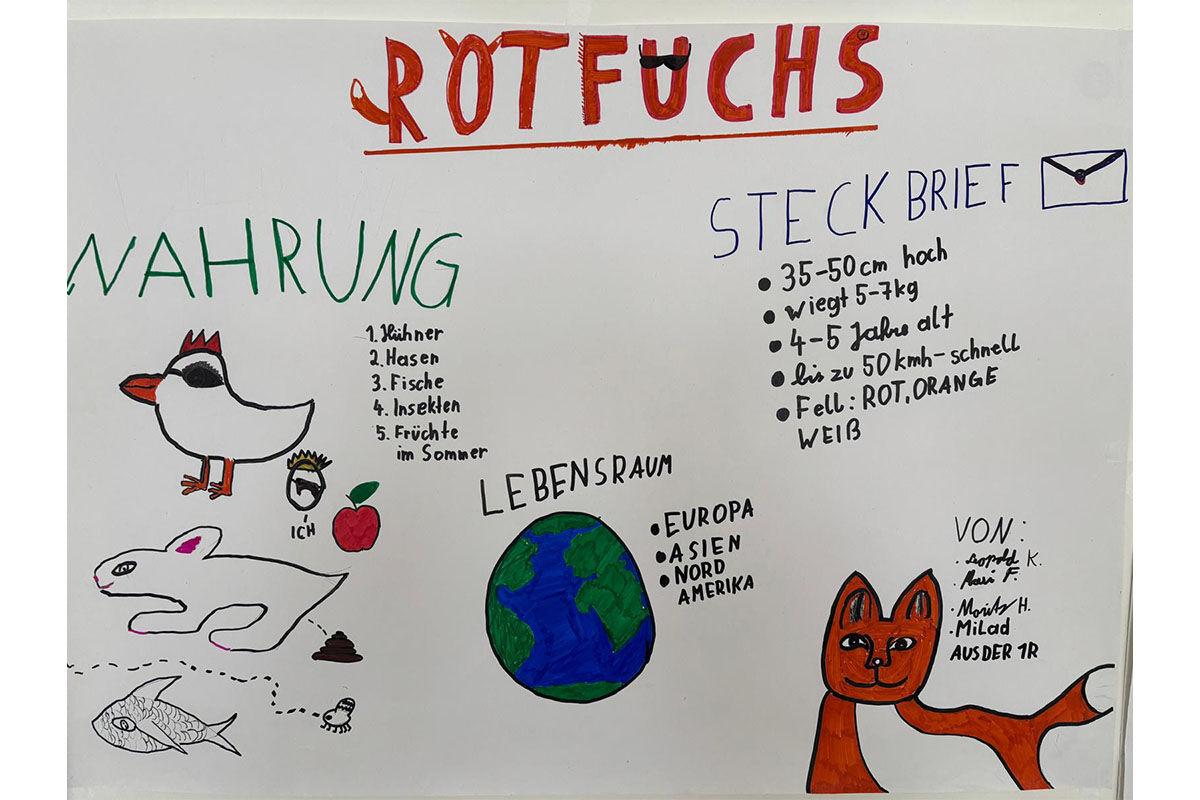 ROTFUCHS
NAHRUNG
1. Hühner
2. Hasen
3. Fische
4. Insekten
5. Früchte
im Sommer
ICH
LEBENSRAUM
• EUROPA
• ASIEN
• NORD
AMERIKA
STECKBRIEF
• 35-50cm hoch
• wiegt 5-7kg
• 4-5 Jahre alt
• bis zu 50 kmh-schnell
• Fell: ROT, ORANGE
WEIß
VON:
· Leopold K.
· F.
· Moritz H.
· Milad
AUS DER 1R